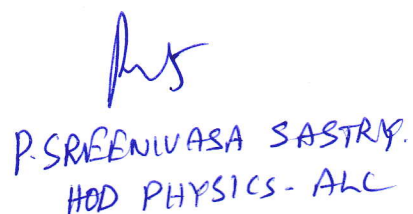 P. SREENIVASA SASTRY.
HOD PHYSICS - ALC